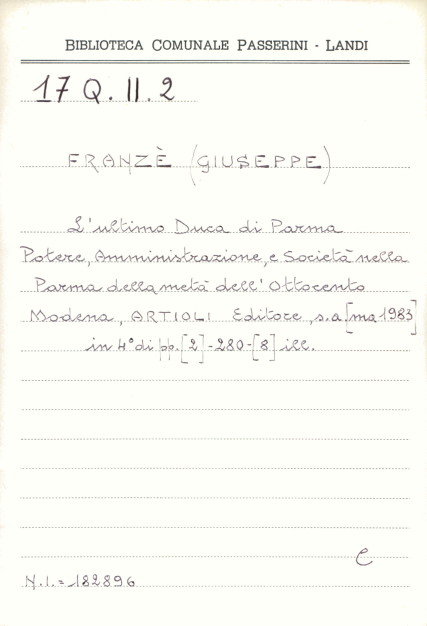 BIBLIOTECA COMUNALE PASSERINI - LANDI
17 Q. II. 2
FRANZÈ (GIUSEPPE)
L'ultimo Duca di Parma
Potere, Amministrazione, e Società nella
Parma della metà dell'Ottocento
Modena, ARTIOLI Editore, s.a. [ma 1983]
in 4° di pp. [2] - 280 - [8] ill.
C
N.I. = 182896